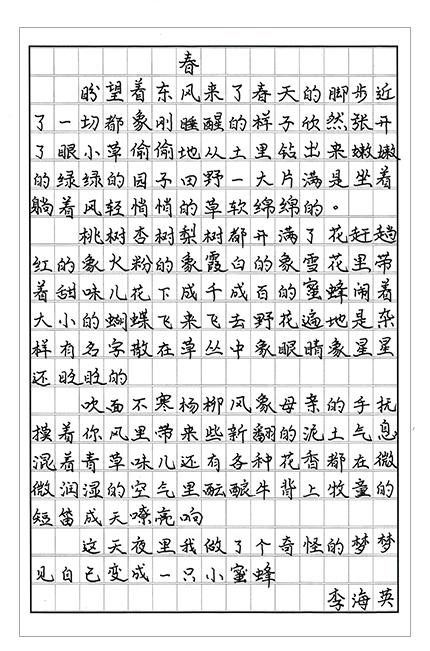 春
盼望着东风来了春天的脚步近
了一切都象刚睡醒的样子欣然张开
了眼小草偷偷地从土里钻出来嫩嫩
的绿绿的园子田野一大片满是坐着
躺着风轻悄悄的草软绵绵的。
桃树杏树梨树都开满了花赶趟
红的象火粉的象霞白的象雪花里带
着甜味儿花下成千成百的蜜蜂闹着
大小的蝴蝶飞来飞去野花遍地是杂
样有名字散在草丛中象眼睛象星星
还眨眨的
吹面不寒杨柳风象母亲的手抚
摸着你风里带来些新翻的泥土气息
混着青草味儿还有各种花香都在微
微润湿的空气里酝酿牛背上牧童的
短笛成天嘹亮响
这天夜里我做了个奇怪的梦梦
见自己变成一只小蜜蜂
李海英